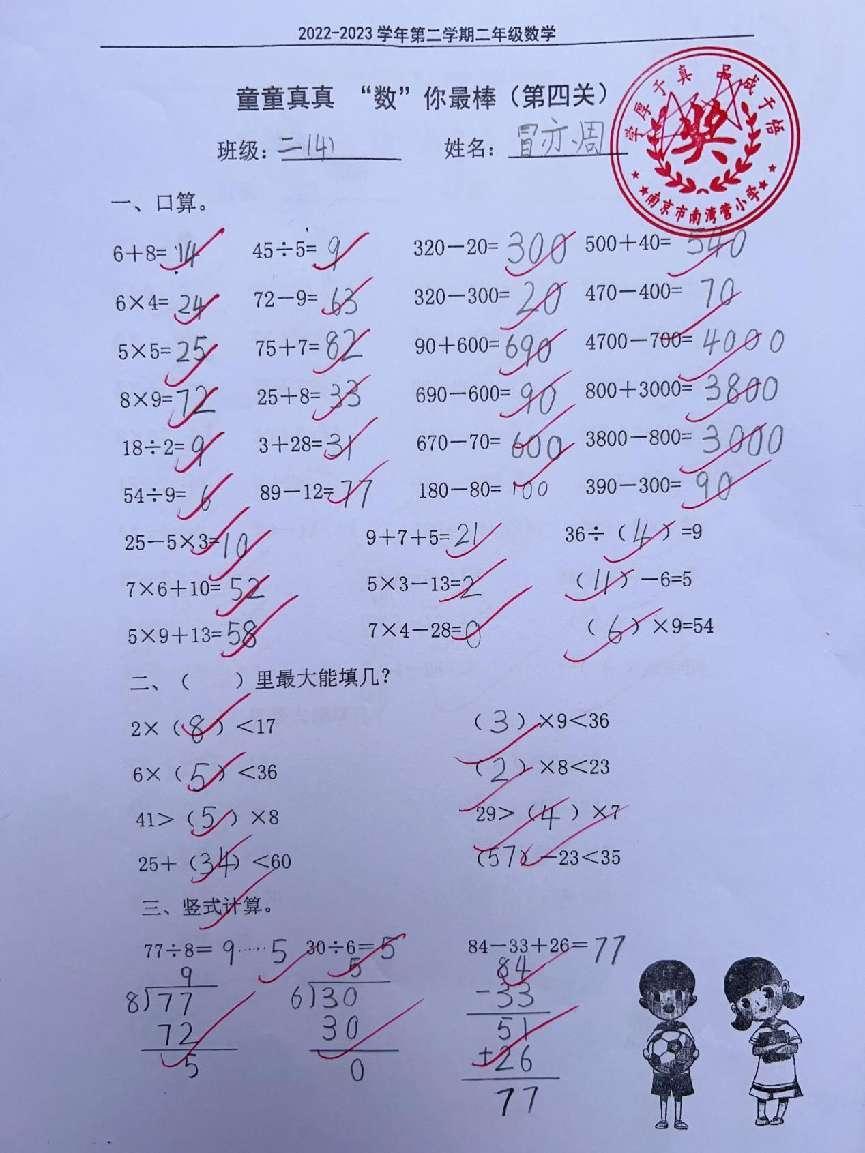 2022-2023 学年第二学期二年级数学
童童真真 “数”你最棒（第四关）
学厚于真 品成于悟
奖
南京市南湾营小学
班级：二(4) 姓名：冒亦周
一、口算。
6＋8= 14 45÷5= 9 320－20= 300 500＋40= 540
6×4= 24 72－9= 63 320－300= 20 470－400= 70
5×5= 25 75＋7= 82 90＋600= 690 4700－700= 4000
8×9= 72 25＋8= 33 690－600= 90 800＋3000= 3800
18÷2= 9 3＋28= 31 670－70= 600 3800－800= 3000
54÷9= 6 89－12= 77 180－80= 100 390－300= 90
25－5×3= 10 9＋7＋5= 21 36÷（4）=9
7×6＋10= 52 5×3－13= 2 （11）－6=5
5×9＋13= 58 7×4－28= 0 （6）×9=54
二、（ ）里最大能填几？
2×（8）＜17 （3）×9＜36
6×（5）＜36 （2）×8＜23
41＞（5）×8 29＞（4）×7
25＋（34）＜60 （57）－23＜35
三、竖式计算。
77÷8= 9……5 30÷6= 5 84－33＋26= 77
9 5 84
8)77 6)30 -33
72 30 51
5 0 +26
77